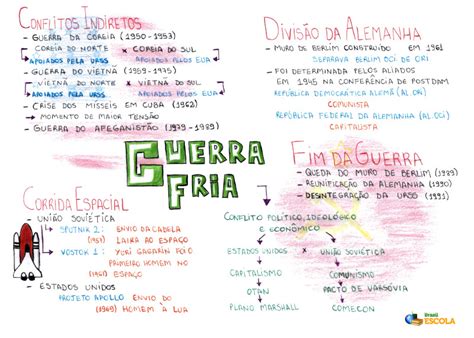 CONFLITOS INDIRETOS
- GUERRA DA COREIA (1950-1953)
COREIA DO NORTE × COREIA DO SUL
APOIADOS PELA URSS APOIADOS PELOS EUA
- GUERRA DO VIETNÃ (1959-1975)
VIETNÃ DO NORTE × VIETNÃ DO SUL
APOIADOS PELA URSS APOIADOS PELOS EUA
- CRISE DOS MÍSSEIS EM CUBA (1962)
→ MOMENTO DE MAIOR TENSÃO
- GUERRA DO AFEGANISTÃO (1979-1989)
DIVISÃO DA ALEMANHA
- MURO DE BERLIM CONSTRUÍDO EM 1961
SEPARAVA BERLIM OCI DE ORI
- FOI DETERMINADA PELOS ALIADOS
EM 1945 NA CONFERÊNCIA DE POSTDAM
REPÚBLICA DEMOCRÁTICA ALEMÃ (AL.ORI)
COMUNISTA
REPÚBLICA FEDERAL DA ALEMANHA (AL.OCI)
CAPITALISTA
GUERRA
FRIA
FIM DA GUERRA
- QUEDA DO MURO DE BERLIM (1989)
- REUNIFICAÇÃO DA ALEMANHA (1990)
- DESINTEGRAÇÃO DA URSS (1991)
CORRIDA ESPACIAL
- UNIÃO SOVIÉTICA
SPUTNIK 2: ENVIO DA CADELA
(1957) LAIKA AO ESPAÇO
VOSTOK 1: YURI GAGARIN FOI O
PRIMEIRO HOMEM NO
(1961) ESPAÇO
- ESTADOS UNIDOS
PROJETO APOLLO ENVIO DO
(1969) HOMEM À LUA
CONFLITO POLÍTICO, IDEOLÓGICO
E ECONÔMICO
ESTADOS UNIDOS × UNIÃO SOVIÉTICA
CAPITALISMO COMUNISMO
OTAN PACTO DE VARSÓVIA
PLANO MARSHALL COMECON
Brasil
ESCOLA